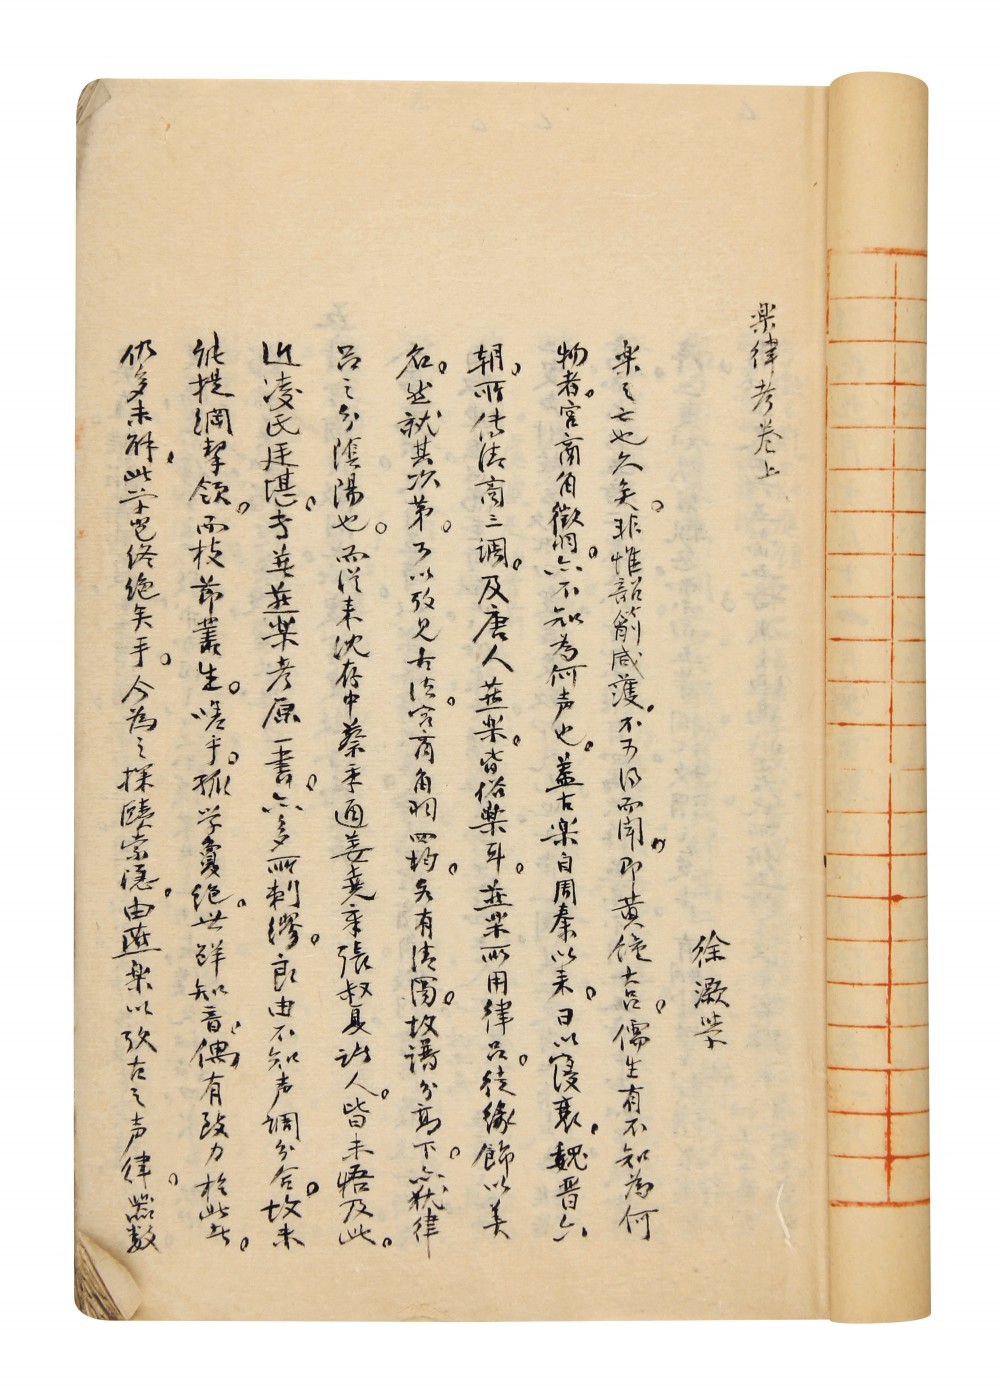 楽律考卷上
徐灝學
楽之亡也久矣。非惟韶箾咸護。不可得而聞。即黄鐘大吕。儒生有不知為何
物者。宮商角徵羽。亦不知為何声也。蓋古楽自周秦以来。日以寖衰。魏晋六
朝。所傳清商三調。及唐人燕楽。皆俗樂耳。燕樂所用律吕。徒緣飾以美
名。然就其次第。可以攷見古法。宮商角羽四均。各有清濁。故譜分高下。亦猶律
吕之分陰陽也。而從来沈存中蔡季通姜堯章張叔夏諸人。皆未悟及此。
近凌氏廷堪。専著燕樂考原一書。亦多所刺繆。良由不知声調分合。故未
能提綱挈領。而枝節叢生。嗟乎。孤学敻絶。世鮮知音。偶有致力於此者。
仍多未解。此学豈終絶矣乎。今為之探賾索隐。由燕楽以攷古之声律器数